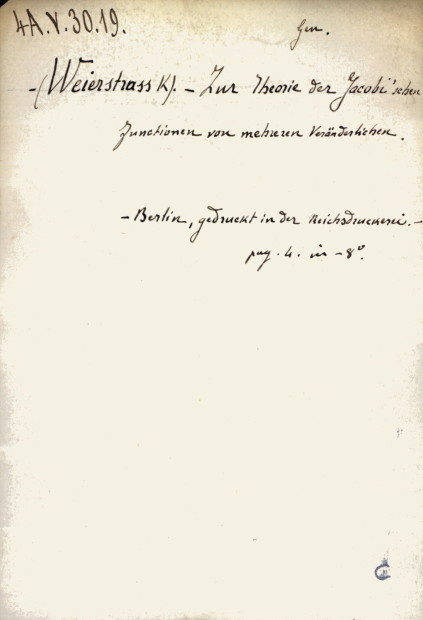 4A.V.30.19.
Gen.
-(Weierstrass K). - Zur Theorie der Jacobi'schen
Functionen von mehreren Veränderlichen.
- Berlin, gedruckt in der Reichsdruckerei. -
pag. 4. in - 8°.